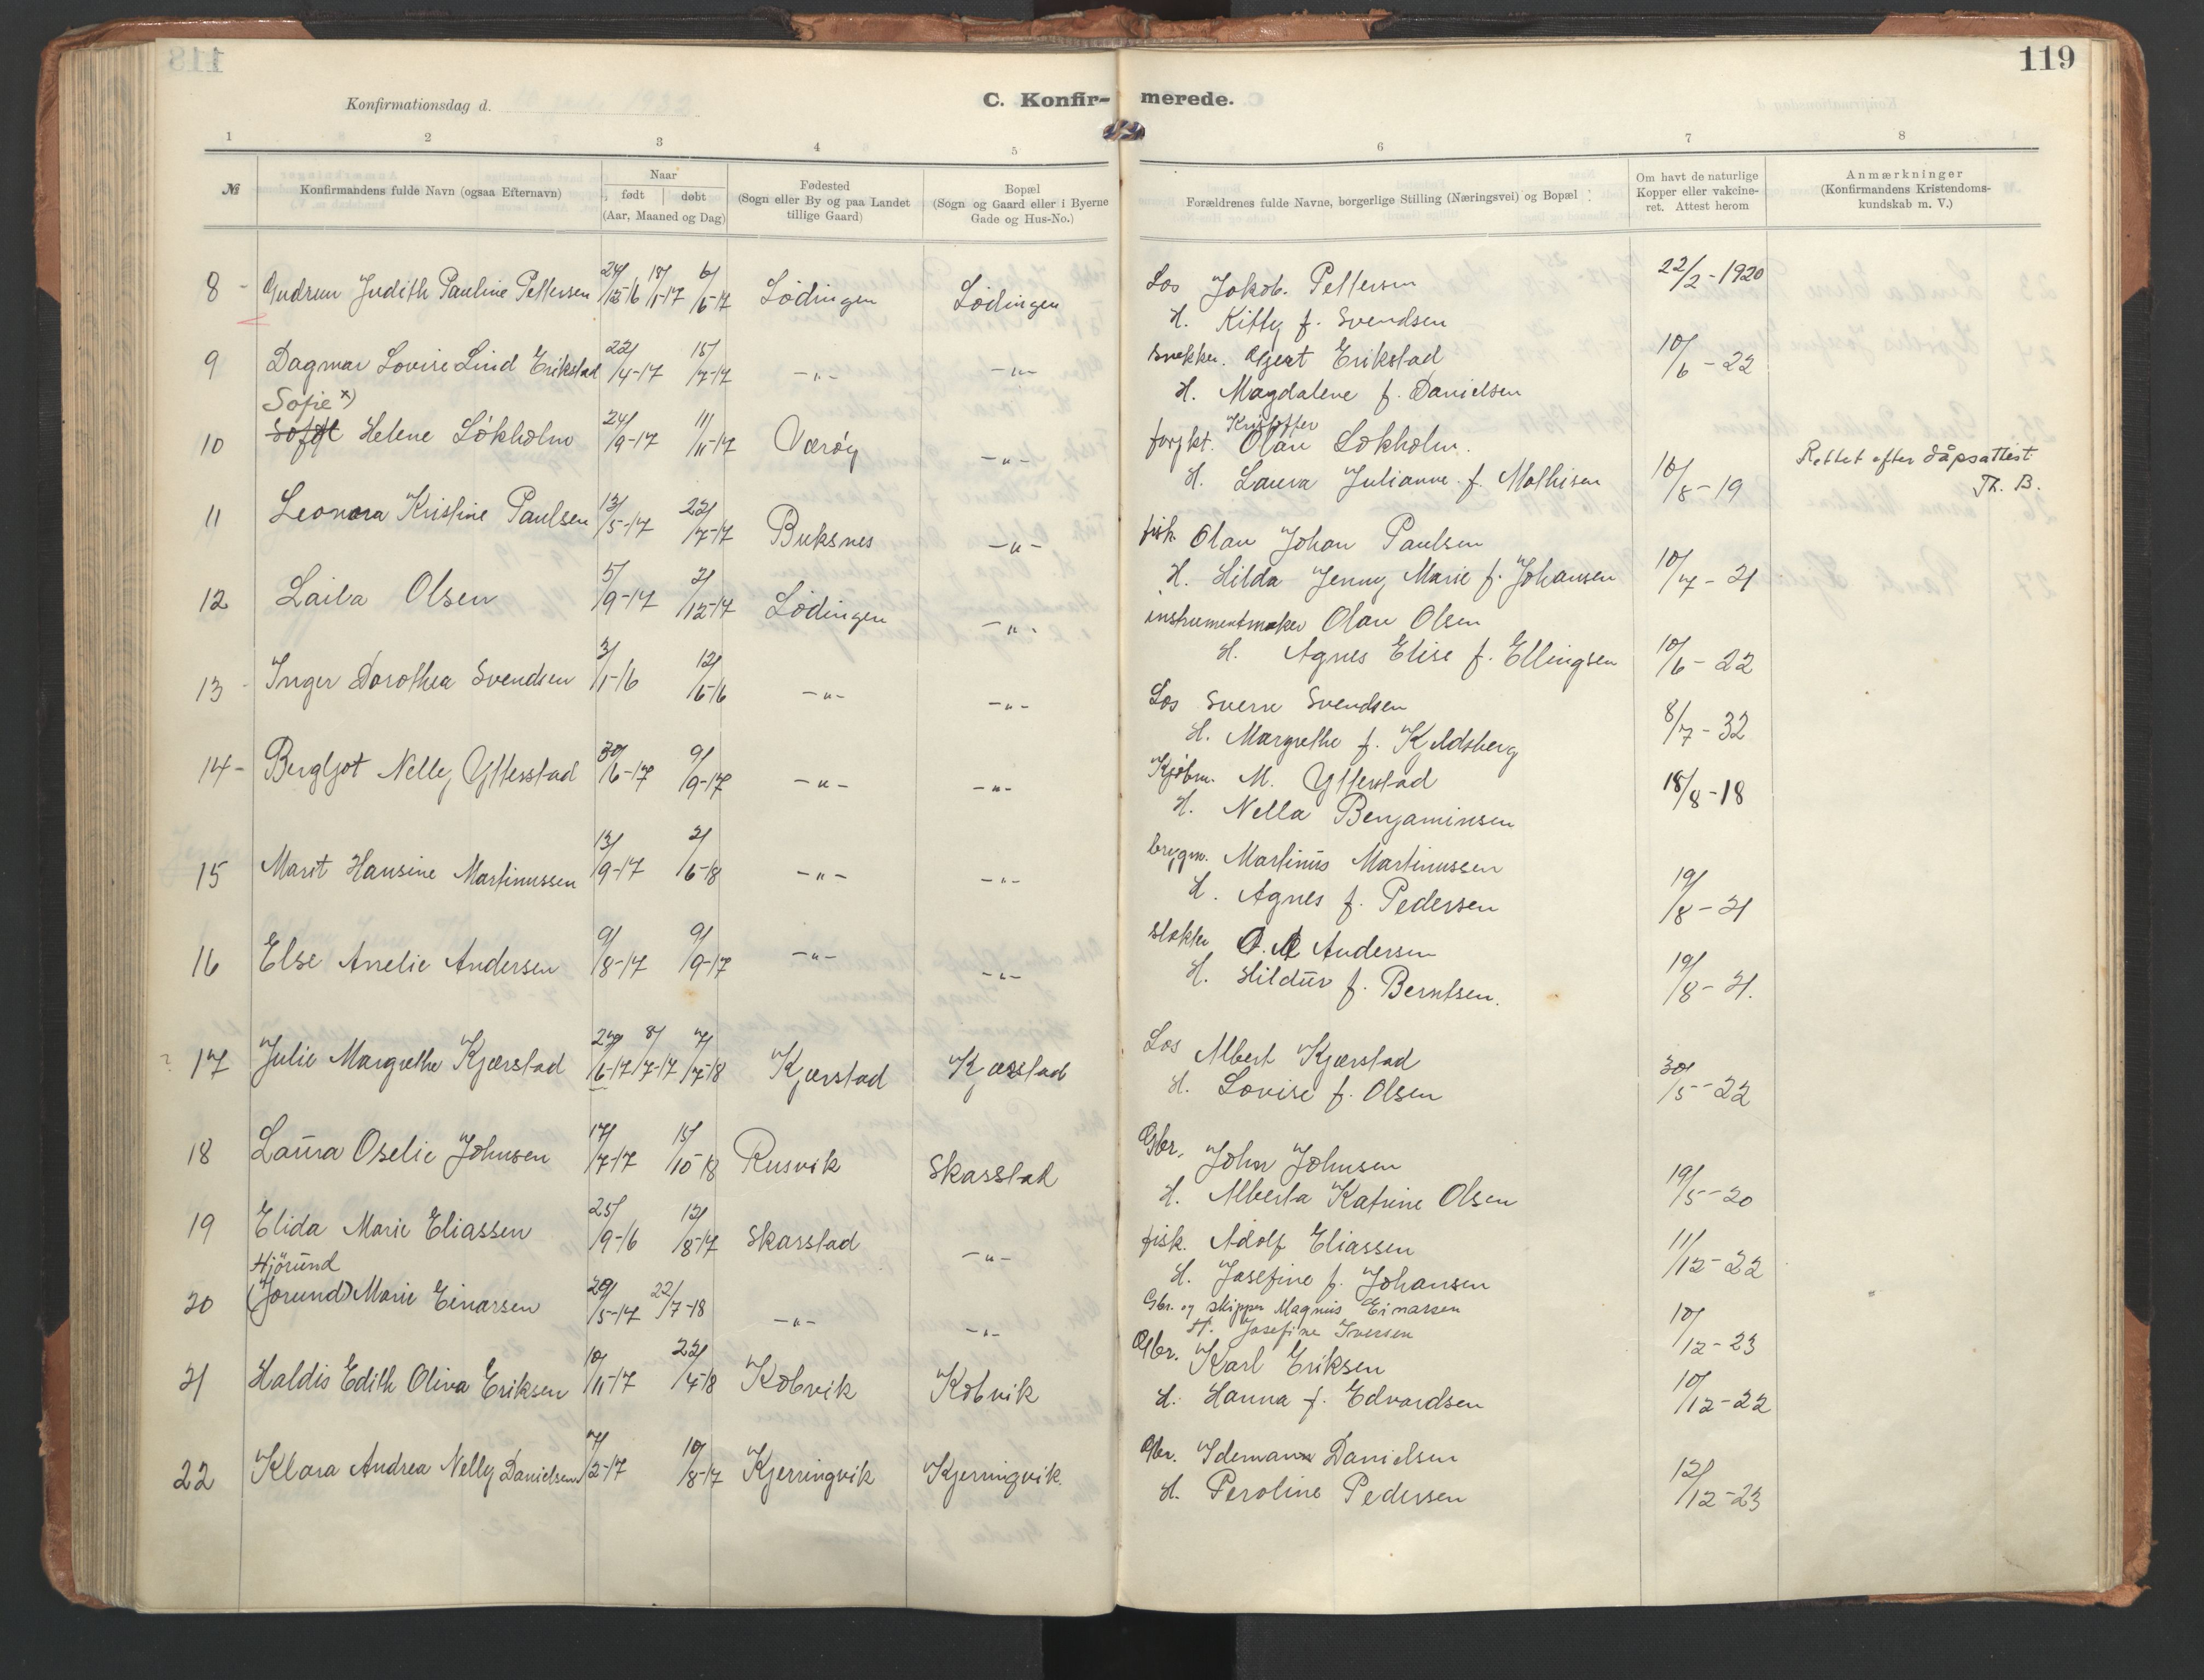 119
Konfirmationsdag d.
C. Konfir- merede.
1 2 3 4 5 6 7 8
№
Konfirmandens fulde Navn (ogsaa Efternavn)
Naar
født | døbt
(Aar, Maaned og Dag)
Fødested
(Sogn eller By og paa Landet
tillige Gaard)
Bopæl
(Sogn og Gaard eller i Byerne
Gade og Hus-No.)
Forældrenes fulde Navne, borgerlige Stilling (Næringsvei) og Bopæl
Om havt de naturlige
Kopper eller vakcine-
ret. Attest herom
Anmærkninger
(Konfirmandens Kristendoms-
kundskab m. V.)
8 - Gudrun Judith Pauline Pettersen 24/12-16 18/1-17 6/5-17 Lödingen Lödingen Los Jakob. Pettersen 22/2-1920
H. Kitty f. Svendsen
9 Dagmar Lovise Lind Erikstad 22/4-17 15/7-17 -"- -"- Snekker. Gjert Erikstad 10/6-22
H. Magdalene f. Danielsen
Sofie x)
10 Helene Lökholm 24/9-17 11/11-17 Værøy -"- Kristoffer
Olav Lokholm.
H. Laura Julianne f. Mathisen 10/8-19 Rettet efter dåpsattest.
Th. B.
11 Leonora Kristine Paulsen 13/5-17 22/7-17 Buksnes -"- fisk. Olav Johan Paulsen
H. Hilda Jenny Marie f. Johansen 10/7-21
12 Laila Olsen 5/9-17 2/12-17 Lödingen -"- instrumentmaker Olav Olsen
H. Agnes Elise f. Ellingsen 10/6-22
13 - Inger Dorothea Svendsen 3/1-16 12/6-16 -"- -"- Los Sverre Svendsen 8/7-32
H. Margrethe f. Kjeldsberg
14 - Bergljot Nelly Ytterstad 30/6-17 9/9-17 -"- -"- Kjøbm. M. Ytterstad 18/8-18
H. Nella Benjaminsen
15 Marit Hansine Martinussen 13/9-17 2/6-18 -"- -"- brygm. Martinus Martinussen
H. Agnes f. Pedersen 19/8-21
16 Else Amelie Andersen 9/8-17 9/9-17 -"- -"- slakter O. A Andersen
H. Hildur f. Berntsen. 19/8-21.
17 Julie Margrethe Kjærstad 8/7-17 7/7-18 Kjærstad Kjærstad Los Albert Kjærstad
H. Lovise f. Olsen 30/5-22
18 Laura Oselie Johnsen 17/7-17 15/10-18 Rusvik Skarstad Gbr. John Johnsen
H. Alberta Katrine Olsen 19/5-20
19 Elida Marie Eliassen 25/9-16 12/8-17 Skarstad -"- fisk. Adolf Eliassen
H. Josefine f. Johansen 11/12-22
Hjörund
20 (Jorund) Marie Einarsen 29/5-17 22/7-18 -"- -"- Gbr. og skipper Magnus Einarsen
H. Josefine Iversen 10/12-23
21 Haldis Edith Oliva Eriksen 10/11-17 22/4-18 Kobvik Kobvik Gbr. Karl Eriksen
H. Hanna f. Edvardsen 10/12-22
22 Klara Andrea Nelly Danielsen 7/2-17 10/8-17 Kjerringvik Kjerringvik. Gbr. Idemann Danielsen
H. Peroline Pedersen 12/12-23